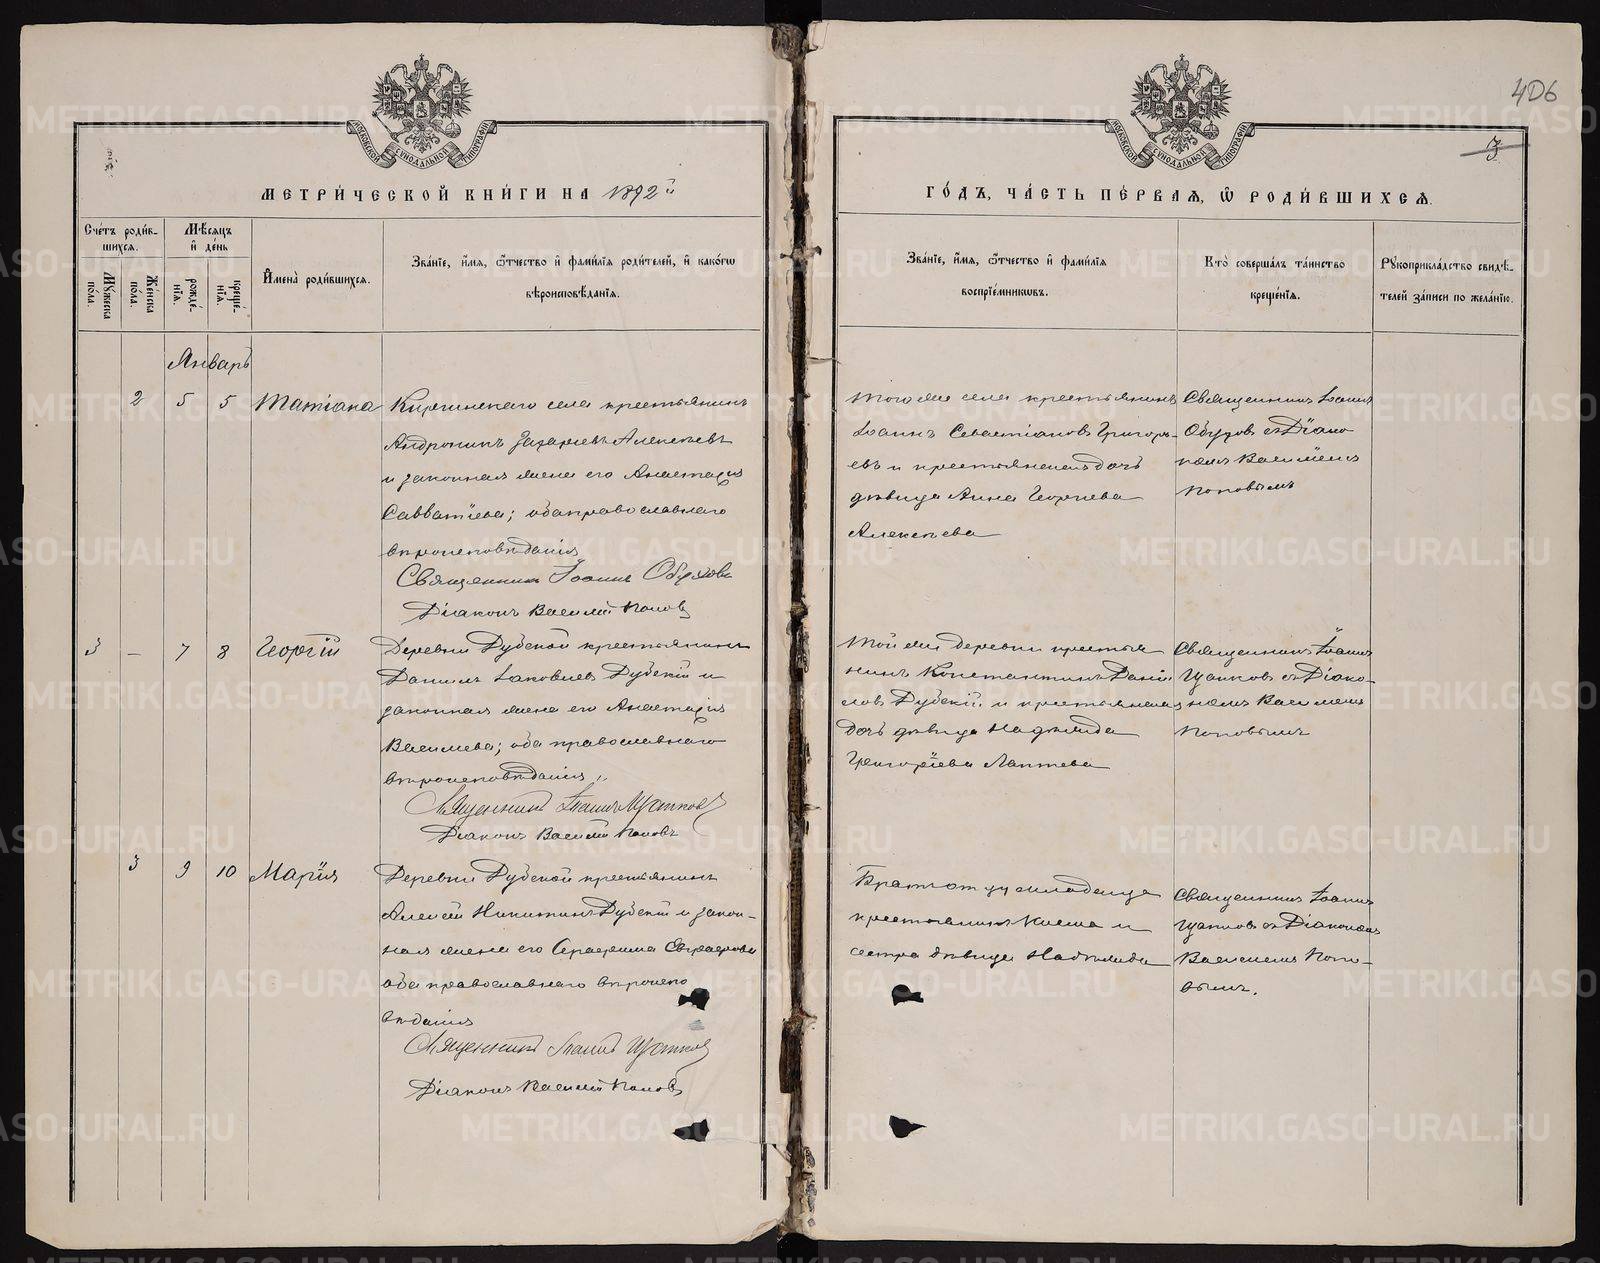 406
3
МОСКОВСКОЙ СУНОДАЛЬНОЙ ТИПОГРАФІИ
МОСКОВСКОЙ СУНОДАЛЬНОЙ ТИПОГРАФІИ
МЕТРИ́ЧЕСКОЙ КНИ́ГИ НА 1892й
ГО́ДЪ, ЧА́СТЬ ПЕ́РВАѦ, Ѽ РОДИ́ВШИХСѦ.
Сче́тъ роди́в-
шихсѧ.
Мꙋ́жеска по́ла.
Же́нска по́ла.
Мѣ́сѧцъ
и҆ де́нь
рожде́-
нїѧ.
креще́-
нїѧ.
И҆мена̀ роди́вшихсѧ.
Зва́нїе, и҆́мѧ, ѻ҆́тчество и҆ фами́лїѧ роди́телей, и҆ како́гѡ
вѣроисповѣ́данїѧ.
Зва́нїе, и҆́мѧ, ѻ҆́тчество и҆ фами́лїѧ
воспрїе́мникѡвъ.
Кто̀ соверша́лъ та́инство
креще́нїѧ.
Рꙋкоприкла́дство свидѣ́-
телей за́писи по жела́нїю.
Январь
2 5 5 Татіана
Киргинскаго села крестьянинъ
Андроникъ Захаріевъ Алексѣевъ
и законная жена его Анастасія
Савватіева; оба православнаго
вѣроисповѣданія
Священникъ Іоаннъ Обуховъ
Діаконъ Василій Поповъ
Того же села крестьянинъ
Іоаннъ Севастіановъ Григорь-
евъ и крестьянская дочь
дѣвица Анна Георгіева
Алексѣева
Священникъ Іоаннъ
Обуховъ съ Діако
номъ Василіемъ
Поповымъ
3 — 7 8 Георгій
Деревни Дубской крестьянинъ
Даніилъ Іаковлевъ Дубскій и
законная жена его Анастасія
Василіева; оба православнаго
вѣроисповѣданія
Священникъ Іоаннъ
Діаконъ Василій Поповъ
Той же деревни крестья
нинъ Константинъ Даніи
ловъ Дубскій и крестьянская
дочь дѣвица Надежда
Григоріева Лаптева
Священникъ Іоаннъ
съ Діако-
номъ Василіемъ
Поповымъ
3 9 10 Марія
Деревни Дубской крестьянинъ
Алексій Никитинъ Дубскій и закон-
ная жена его Серафима Евграфова
оба православнаго вѣроиспо
вѣданія
Священникъ Іоаннъ
Діаконъ Василій Поповъ
Братъ отцу младенца
крестьянинъ и
сестра дѣвица Надежда
Священникъ Іоаннъ
съ Діакономъ
Василіемъ Попо-
вымъ.
METRIKI.GASO-URAL.RU